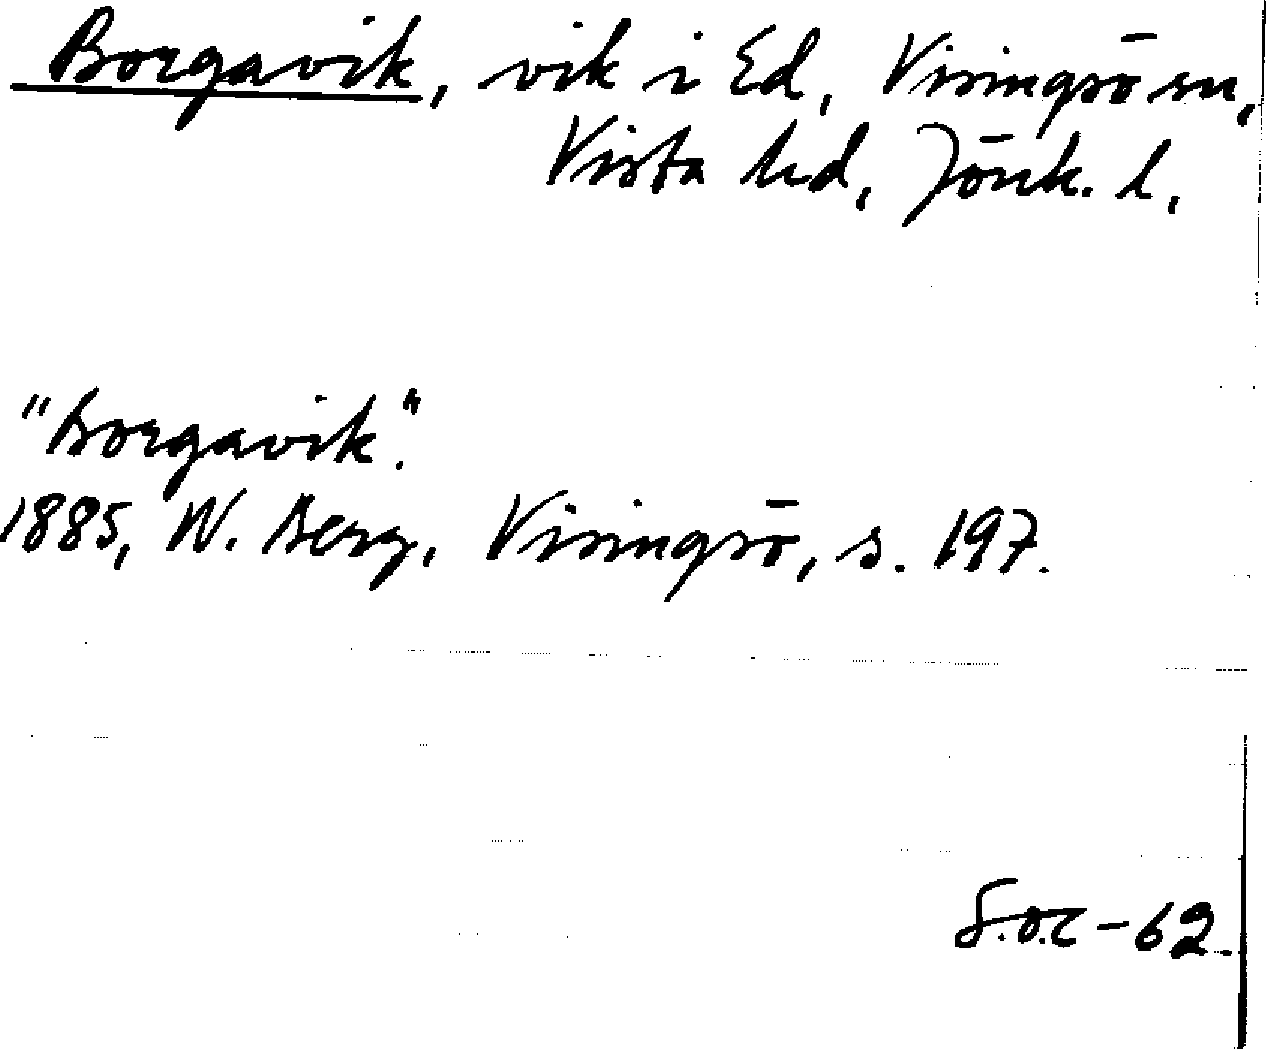 Borgavik, vik i Ed, Visingsö sn,
Vista hd, Jönk. l.
"Borgavik".
1885, W. Berg, Visingsö, s. 197.
S.Ö.C-62